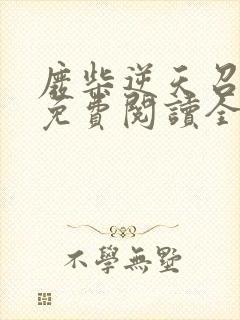 廢柴逆天召
免費閱讀全
不學無墅